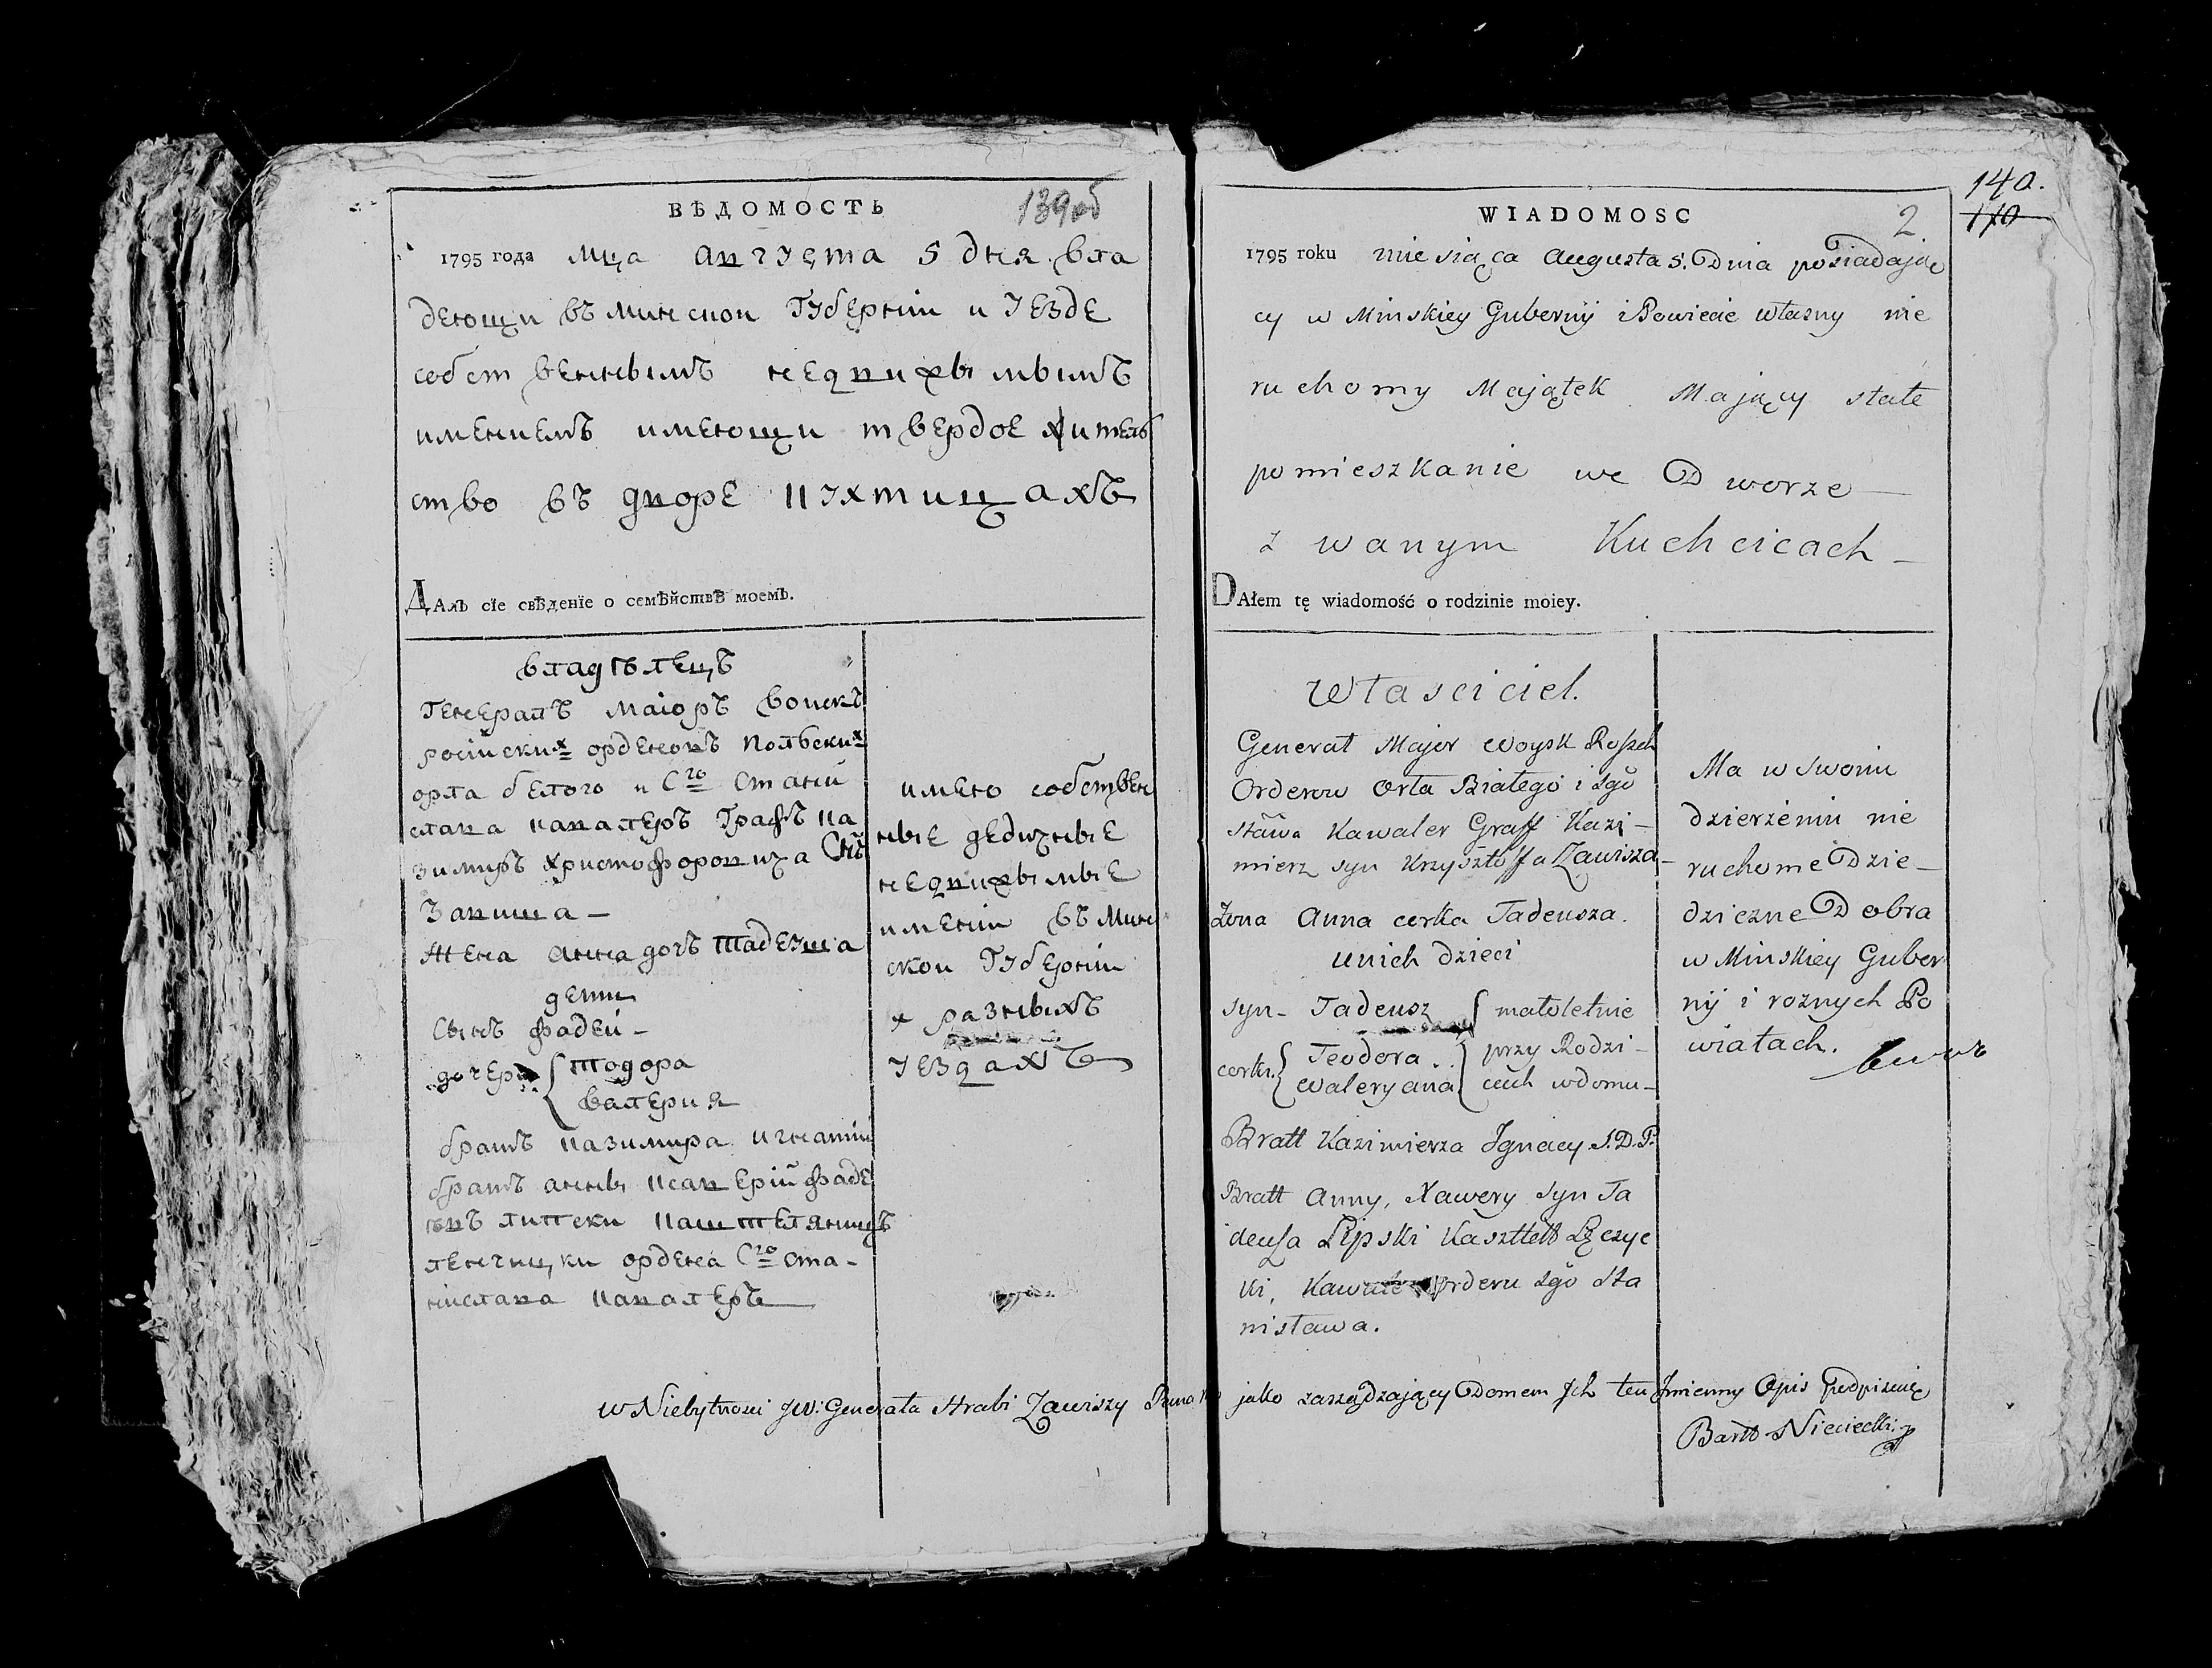 ВѢДОМОСТЬ
139об
1795 года мца августа 5 дня вла
деющи въ минскои Губернiи и уезде
собственнымъ недвижымымъ
имениемъ имеющи твердое житель
ство въ дворе Кухтицахъ
ДАлъ сїе свѣденїе о семѣйствѣ моемъ.
владѣлецъ
Генералъ маiоръ воискъ
росiйских орденовъ польских
орла белого и Сго Станi
слава кавалеръ Графъ Ка
зимиръ христофоровича Снъ
Завиша —
Жена анна дочъ Тадеуша
дети
Сынъ фадеи —
дочери { Тодора
валерия
братъ казимира игнатiи
братъ анны ксаверiй фаде
евъ липски каштеляницъ
ленчицки ордена Сго Ста-
нiслава кавалеръ
имею собствен
ные дедичные
недвижымые
имениi въ Мин
скои Губернiи
х разныхъ
уездахъ
WIADOMOSC
2
140.
170
1795 roku miesiąca Augusta 5. Dnia posiadają
cy w Minskiey Gubernij i Powiecie własny nie
ruchomy Majątek Mający stałe
pomieszkanie we Dworze —
zwanym Kuchcicach —
DAłem tę wiadomość o rodzinie moiey.
Własciciel.
Generał Major Woysk Roszch
Orderow Orła Białego i Sgo
stawa Kawaler Graff Kazi—
mierz syn Krzysztoffa Zawisza—
Żona Anna corka Tadeusza.
unich dzieci
Syn - Tadeusz { małoletnie
corki. { Teodora . . { przy Rodzi-
Waleryana { cach w domu —
Bratt Kazimierza Ignacy S.D.P.
Bratt Anny, Xawery syn Ta
deusza Lipski Kasztell Łęczyc
ki, Orderu Sgo Sta
nisława.
Ma w swoim
dzierżeniu nie
ruchome Dzie—
dziczne Dobra
w Minskiey Guber
nij i roznych Po
wiatach.
w Niebytności JW: Generała Hrabi Zawiszy jako zarządzający Domem Jch ten Jmienny Opis Podpisuię
Bartł Nieciecki